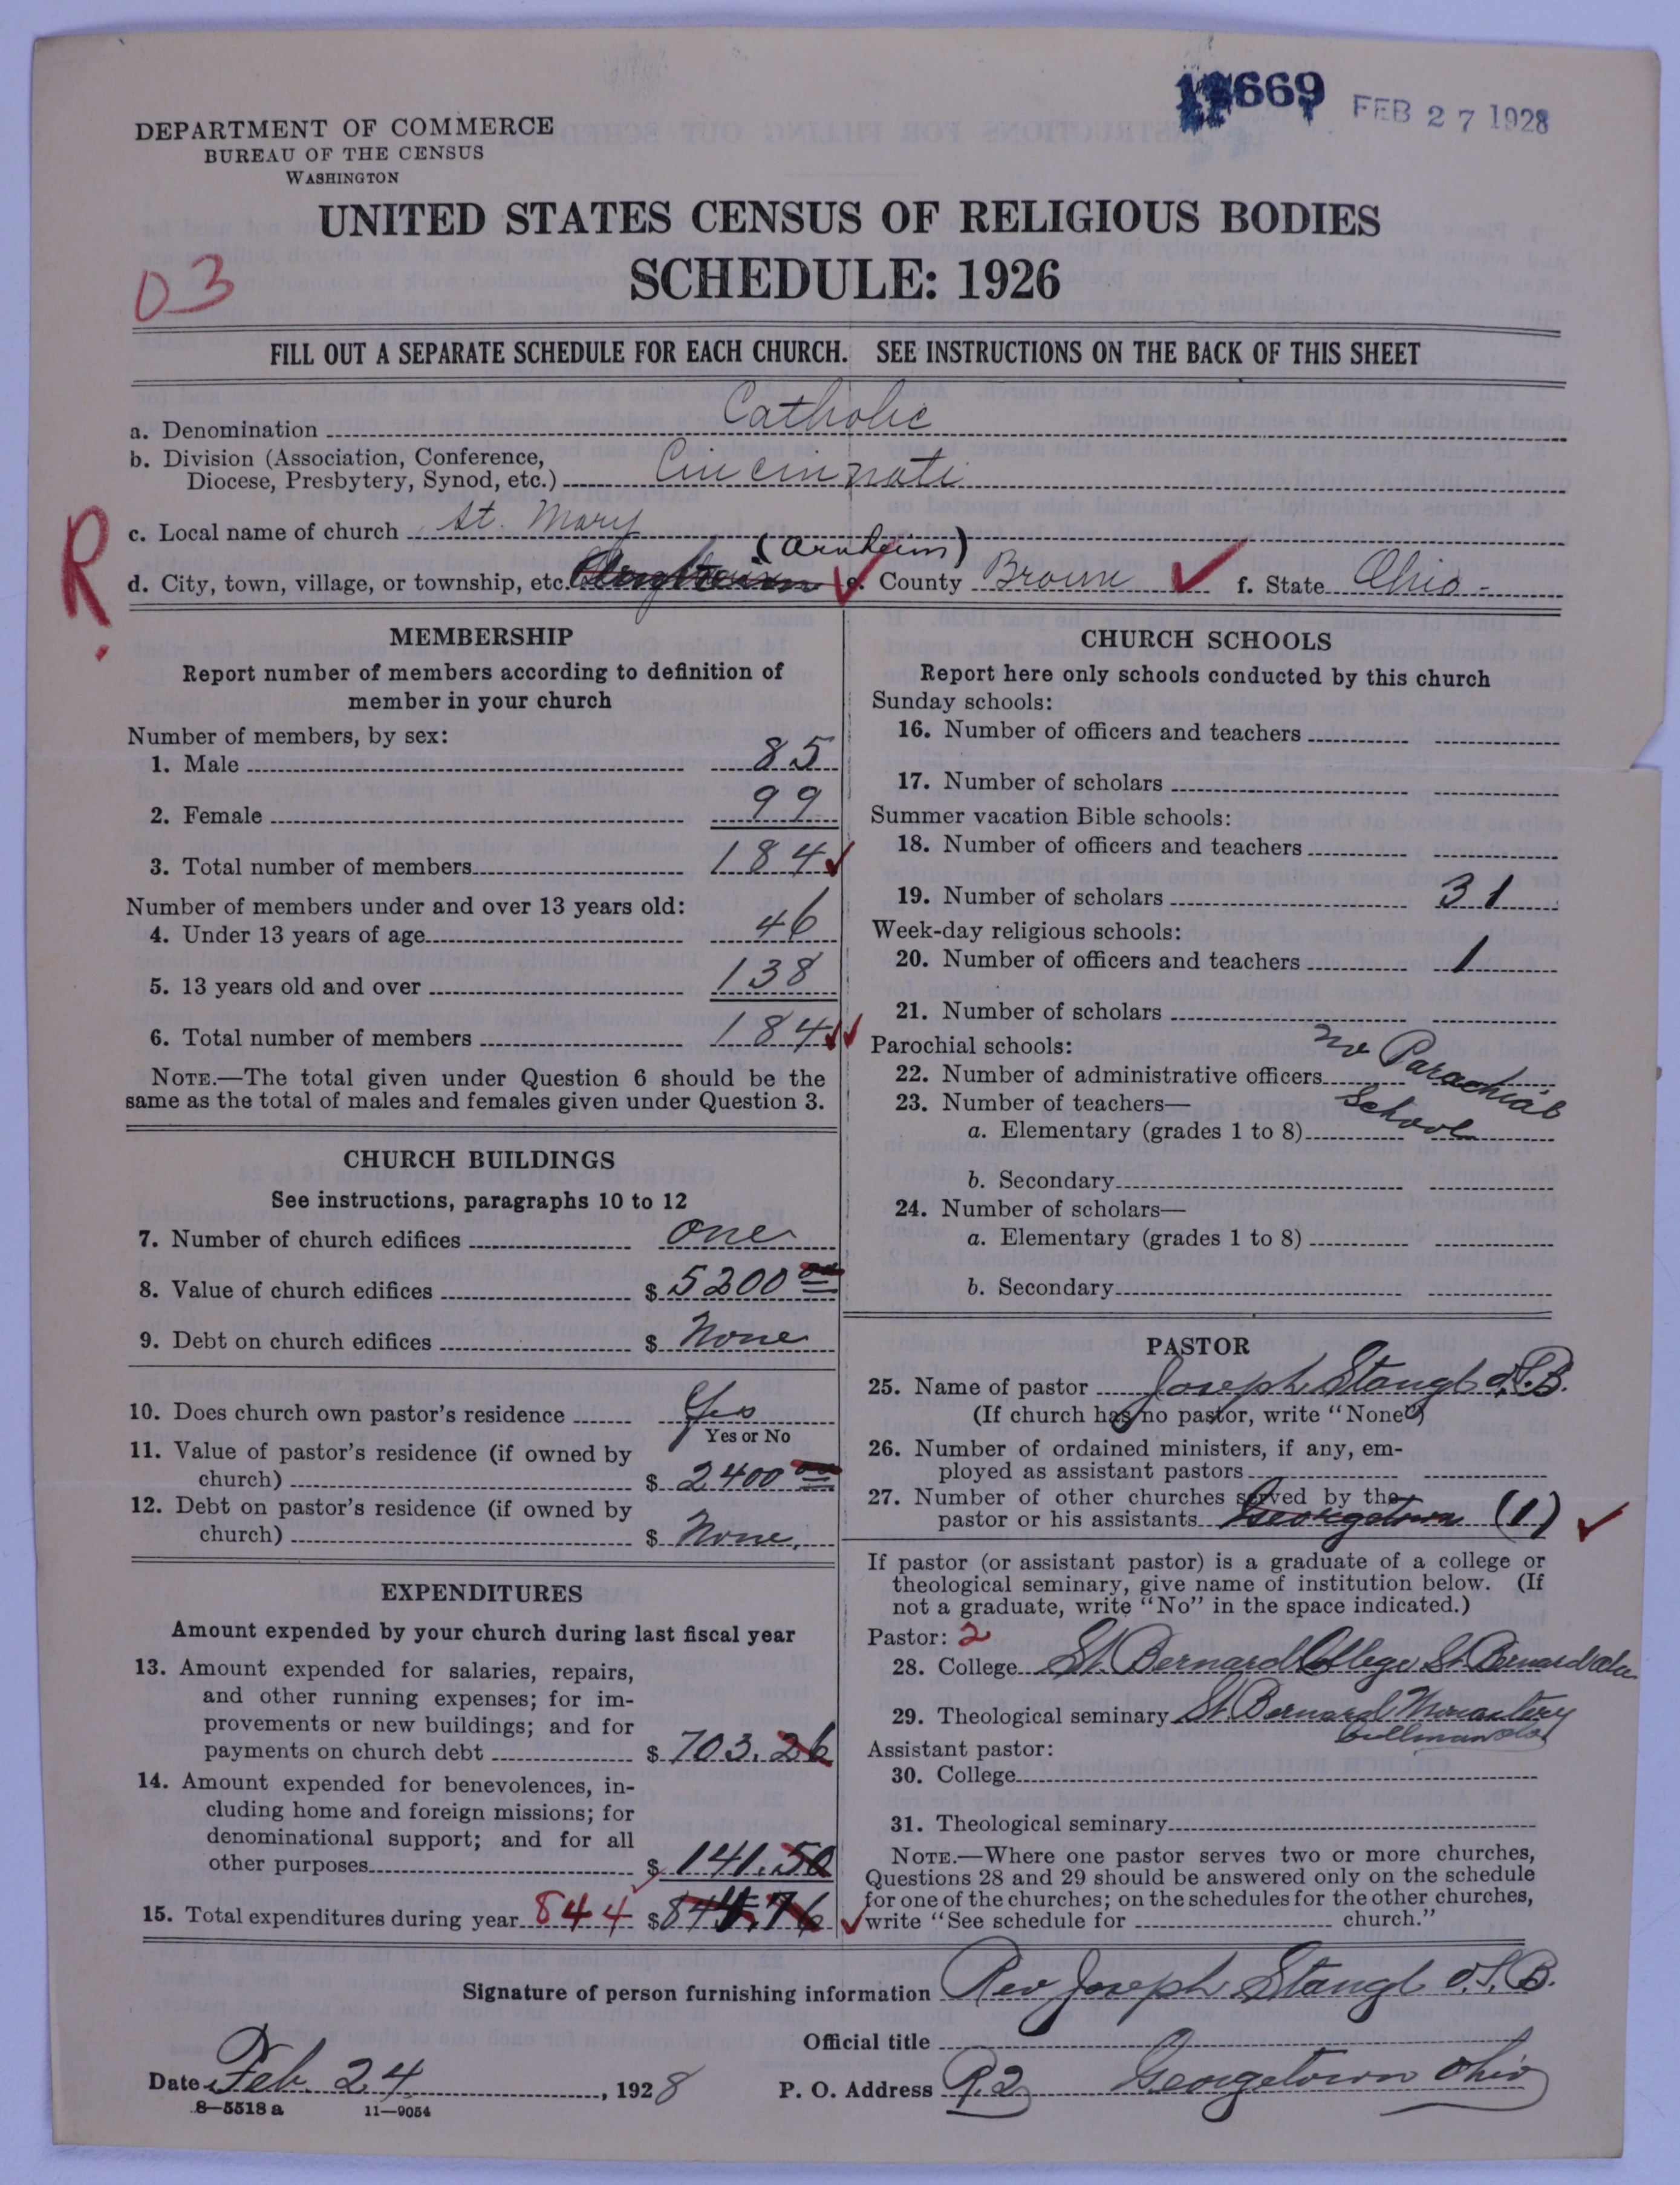 669 FEB 27 1928
DEPARTMENT OF COMMERCE
BUREAU OF THE CENSUS
WASHINGTON
UNITED STATES CENSUS OF RELIGIOUS BODIES
SCHEDULE: 1926
03
FILL OUT A SEPARATE SCHEDULE FOR EACH CHURCH. SEE INSTRUCTIONS ON THE BACK OF THIS SHEET
a. Denomination Catholic
b. Division (Association, Conference,
Diocese, Presbytery, Synod, etc.) Cincinnati
R.
c. Local name of church St. Mary
(Arnheim)
d. City, town, village, or township, etc. e. County Brown f. State Ohio -
MEMBERSHIP
Report number of members according to definition of
member in your church
Number of members, by sex:
1. Male 85
2. Female 99
3. Total number of members 184
Number of members under and over 13 years old:
4. Under 13 years of age 46
5. 13 years old and over 138
6. Total number of members 184
NOTE.—The total given under Question 6 should be the
same as the total of males and females given under Question 3.
CHURCH BUILDINGS
See instructions, paragraphs 10 to 12
7. Number of church edifices one
8. Value of church edifices $ 5200 00
9. Debt on church edifices $ None
10. Does church own pastor's residence Yes
Yes or No
11. Value of pastor's residence (if owned by
church) $ 2400 00
12. Debt on pastor's residence (if owned by
church) $ None.
EXPENDITURES
Amount expended by your church during last fiscal year
13. Amount expended for salaries, repairs,
and other running expenses; for im-
provements or new buildings; and for
payments on church debt $ 703.26
14. Amount expended for benevolences, in-
cluding home and foreign missions; for
denominational support; and for all
other purposes $ 141.50
15. Total expenditures during year 844 $ 844.76
CHURCH SCHOOLS
Report here only schools conducted by this church
Sunday schools:
16. Number of officers and teachers
17. Number of scholars
Summer vacation Bible schools:
18. Number of officers and teachers
19. Number of scholars 31
Week-day religious schools:
20. Number of officers and teachers 1
21. Number of scholars
Parochial schools: No Parachial
22. Number of administrative officers
School
23. Number of teachers—
a. Elementary (grades 1 to 8)
b. Secondary
24. Number of scholars—
a. Elementary (grades 1 to 8)
b. Secondary
PASTOR
25. Name of pastor Joseph Stangl O.S.B.
(If church has no pastor, write "None")
26. Number of ordained ministers, if any, em-
ployed as assistant pastors
27. Number of other churches served by the
pastor or his assistants Georgetown (1)
If pastor (or assistant pastor) is a graduate of a college or
theological seminary, give name of institution below. (If
not a graduate, write "No" in the space indicated.)
Pastor: 2
28. College St. Bernard College St. Bernard Ala
29. Theological seminary St. Bernard Monastery
Cullman Ala
Assistant pastor:
30. College
31. Theological seminary
NOTE.—Where one pastor serves two or more churches,
Questions 28 and 29 should be answered only on the schedule
for one of the churches; on the schedules for the other churches,
write "See schedule for church."
Signature of person furnishing information Rev Joseph Stangl O.S.B.
Official title
Date Feb. 24, 1928 P. O. Address R.2 Georgetown Ohio
8—5518 a 11—9054